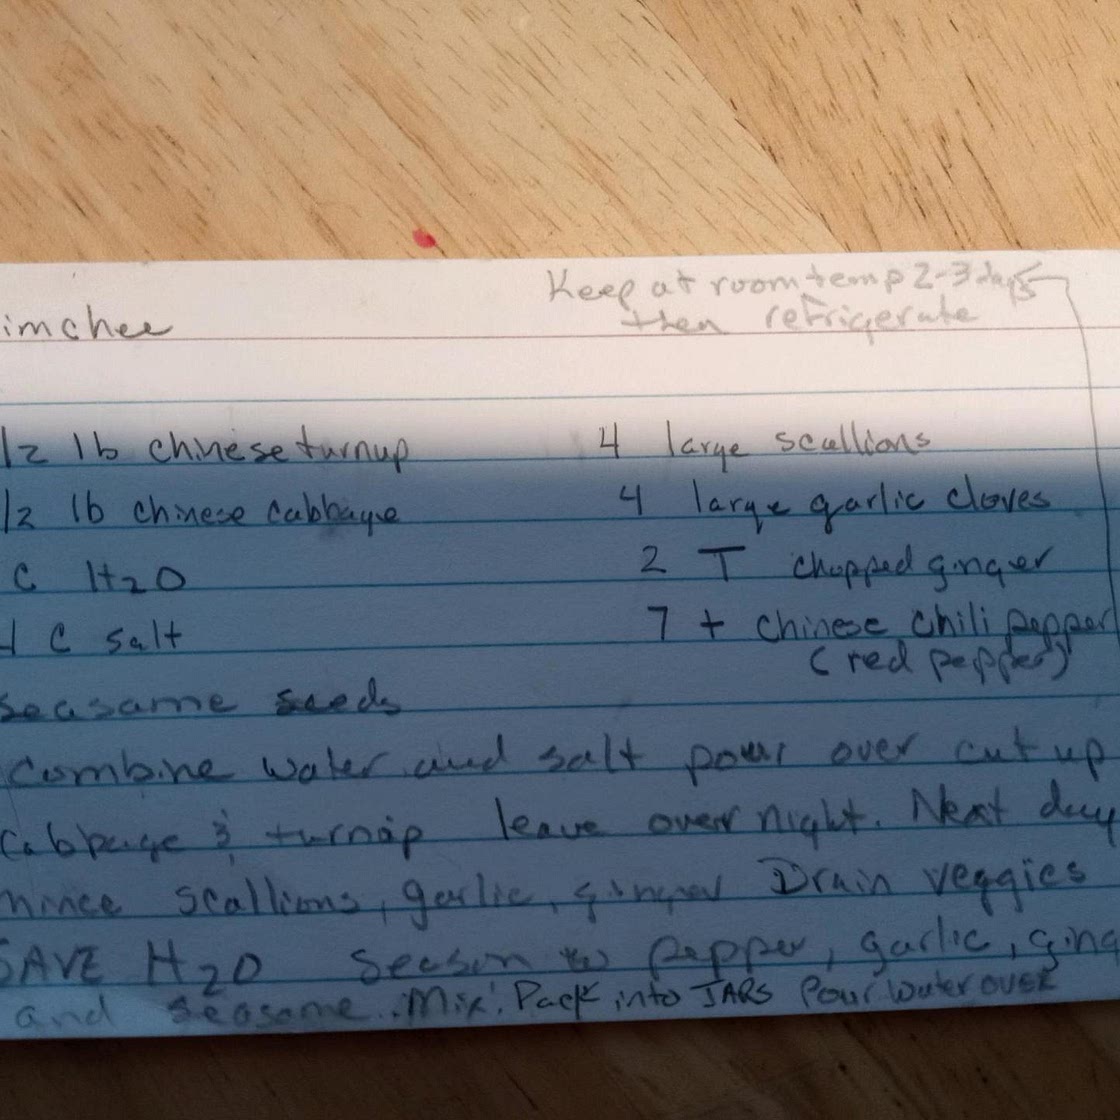 imchee
Keep at room temp 2-3 days
then refrigerate
/2 lb chinese turnup
/2 lb chinese cabbage
C H2O
C salt
seasame seeds
4 large scallions
4 large garlic cloves
2 T chopped ginger
7 + chinese chili pepper
(red pepper)
Combine water and salt pour over cut up
Cabbage & turnip leave over night. Next day
mince scallions, garlic, ginger Drain veggies
SAVE H2O Season w pepper, garlic, ging
and seasame. Mix. Pack into JARS Pour water over